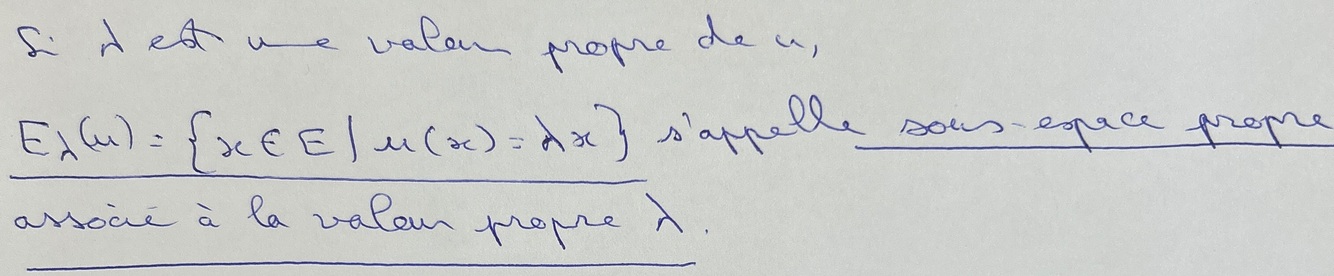 Si λ est une valeur propre de u,
Eλ(u) = {x ∈ E / u(x) = λx} s'appelle sous-espace propre
associé à la valeur propre λ.